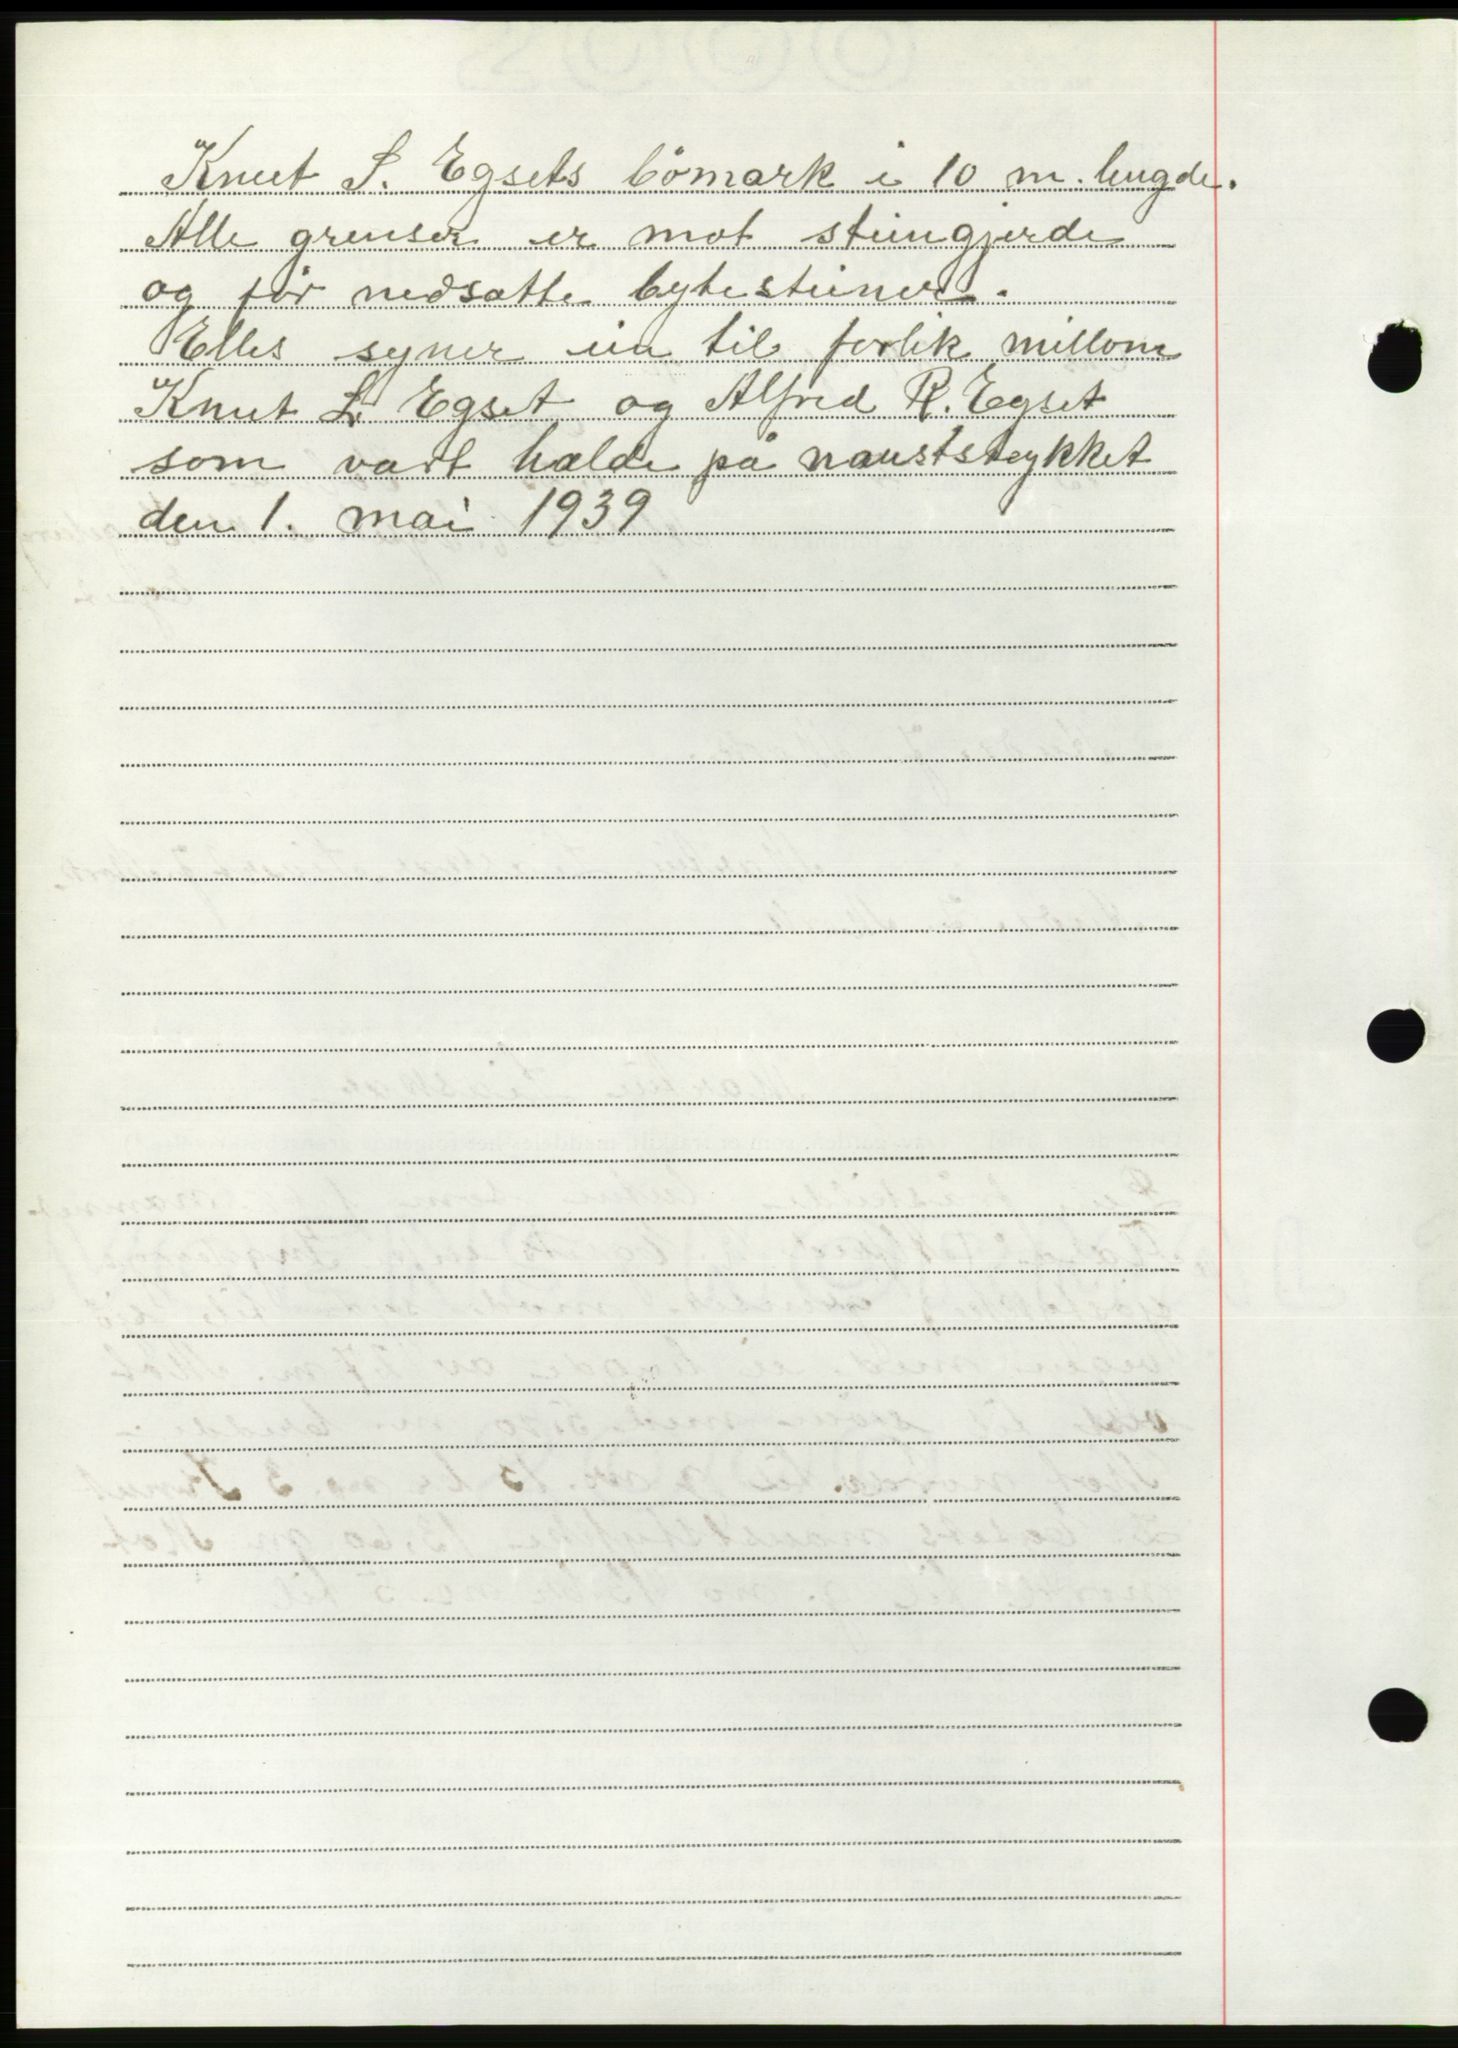 Knut S. Egsets bömark i 10 m. lengde.
Alle grenser er mot steingjerde
og før nedsatte bytesteiner.
Elles syner ein til forlik millom
Knut L. Egset og Alfred R. Egset
som vart halde på nauststykket
den 1. mai 1939